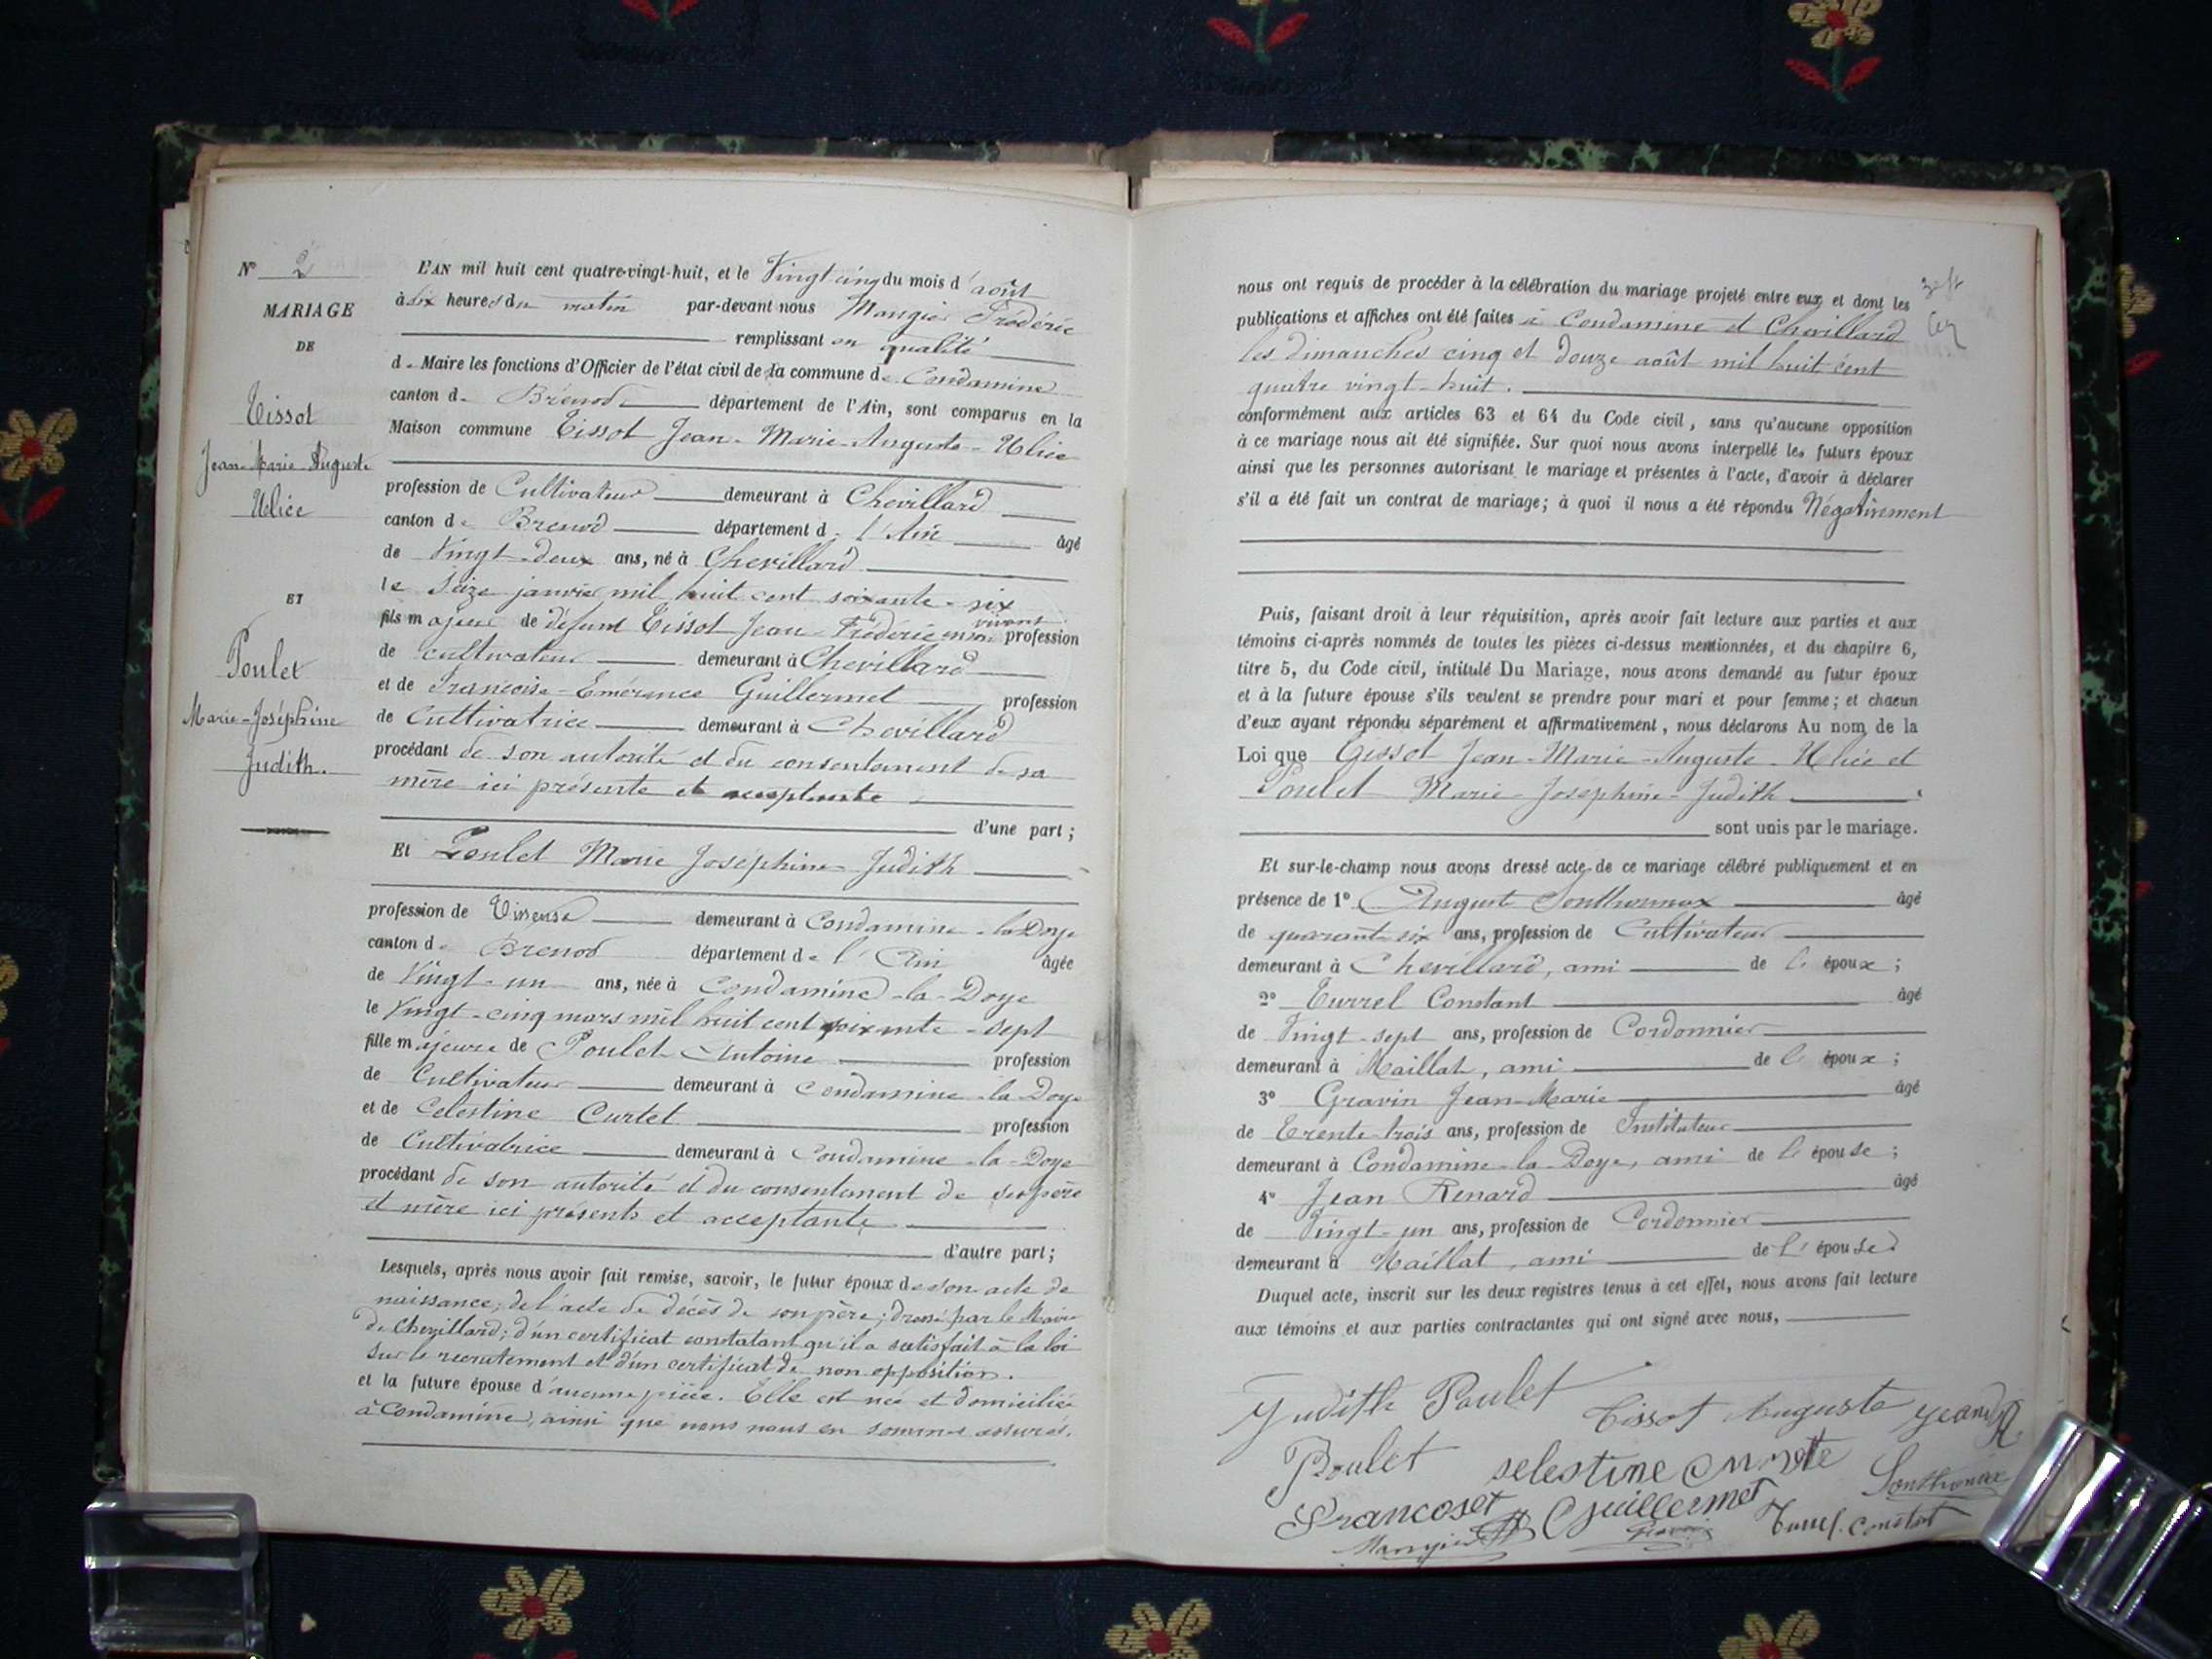 N° 2
MARIAGE
DE
Tissot
Jean-Marie-Auguste
Ulice
ET
Poulet
Marie-Joséphine
Judith.
L'AN mil huit cent quatre-vingt-huit, et le Vingt cinq du mois d'août
à six heures du matin par-devant nous Mangier Frédéric
remplissant en qualité
de Maire les fonctions d'Officier de l'état civil de la commune de Condamine
canton de Brénod département de l'Ain, sont comparus en la
Maison commune Tissot Jean-Marie-Auguste-Ulice
profession de Cultivateur demeurant à Chevillard
canton de Brenod département de l'Ain âgé
de Vingt-deux ans, né à Chevillard
le Seize janvier mil huit cent soixante-six
fils majeur de défunt Tissot Jean-Frédéric en son vivant profession
de cultivateur demeurant à Chevillard
et de Francoise-Emérence Guillermet profession
de Cultivatrice demeurant à Chevillard
procédant de son autorité et du consentement de sa
mère ici présente et acceptante
d'une part ;
Et Poulet Marie Joséphine-Judith
profession de Tisseuse demeurant à Condamine-la-Doye
canton de Brenod département de l'Ain âgée
de Vingt-un ans, née à Condamine-la-Doye
le Vingt-cinq mars mil huit cent soixante-sept
fille majeure de Poulet Antoine profession
de Cultivateur demeurant à Condamine-la-Doye
et de Celestine Curtet profession
de Cultivatrice demeurant à Condamine-la-Doye
procédant de son autorité et du consentement de ses père
et mère ici présents et acceptants
d'autre part ;
Lesquels, après nous avoir fait remise, savoir, le futur époux de son acte de
naissance; de l'acte de décès de son père; dressé par le Maire
de Chevillard; d'un certificat constatant qu'il a satisfait à la loi
sur le recrutement et d'un certificat de non opposition.
et la future épouse d'aucune pièce. Elle est née et domiciliée
à Condamine, ainsi que nous nous en sommes assurés.
nous ont requis de procéder à la célébration du mariage projeté entre eux et dont les
publications et affiches ont été faites à Condamine et Chevillard
les dimanches cinq et douze août mil huit cent
quatre vingt-huit.
conformément aux articles 63 et 64 du Code civil, sans qu'aucune opposition
à ce mariage nous ait été signifiée. Sur quoi nous avons interpellé les futurs époux
ainsi que les personnes autorisant le mariage et présentes à l'acte, d'avoir à déclarer
s'il a été fait un contrat de mariage; à quoi il nous a été répondu Négativement
Puis, faisant droit à leur réquisition, après avoir fait lecture aux parties et aux
témoins ci-après nommés de toutes les pièces ci-dessus mentionnées, et du chapitre 6,
titre 5, du Code civil, intitulé Du Mariage, nous avons demandé au futur époux
et à la future épouse s'ils veulent se prendre pour mari et pour femme; et chacun
d'eux ayant répondu séparément et affirmativement, nous déclarons Au nom de la
Loi que Tissot Jean-Marie-Auguste-Ulice et
Poulet Marie-Josephine-Judith
sont unis par le mariage.
Et sur-le-champ nous avons dressé acte de ce mariage célébré publiquement et en
présence de 1° Auguste Sonthonnax âgé
de quarant-six ans, profession de Cultivateur
demeurant à Chevillard, ami de l'époux ;
2° Turrel Constant âgé
de Vingt-sept ans, profession de Cordonnier
demeurant à Maillat, ami de l'époux ;
3° Gravin Jean-Marie âgé
de Trente-trois ans, profession de Instituteur
demeurant à Condamine-la-Doye, ami de l'épouse ;
4° Jean Renard âgé
de Vingt-un ans, profession de Cordonnier
demeurant à Maillat, ami de l'épouse
Duquel acte, inscrit sur les deux registres tenus à cet effet, nous avons fait lecture
aux témoins et aux parties contractantes qui ont signé avec nous,
Judith Poulet Tissot Auguste jean R
Poulet selestine
Sonthonnax
Guillermet
Mangier Gravin Turrel Constant